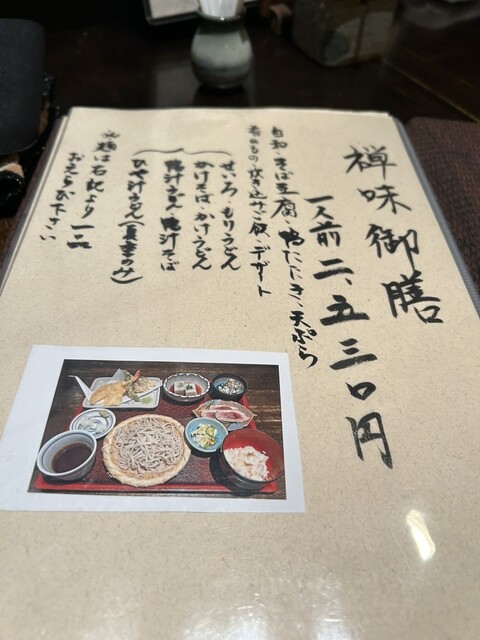 禅味御膳
一人前 二、五三〇円
白和・そば豆腐・鴨たたき、天ぷら
香のもの・炊き込みご飯・デザート
せいろ・もりうどん
かけそば・かけうどん
鴨汁うどん・鴨汁そば
ひや汁うどん(夏季のみ)
※麺は右記より一品
お選び下さい